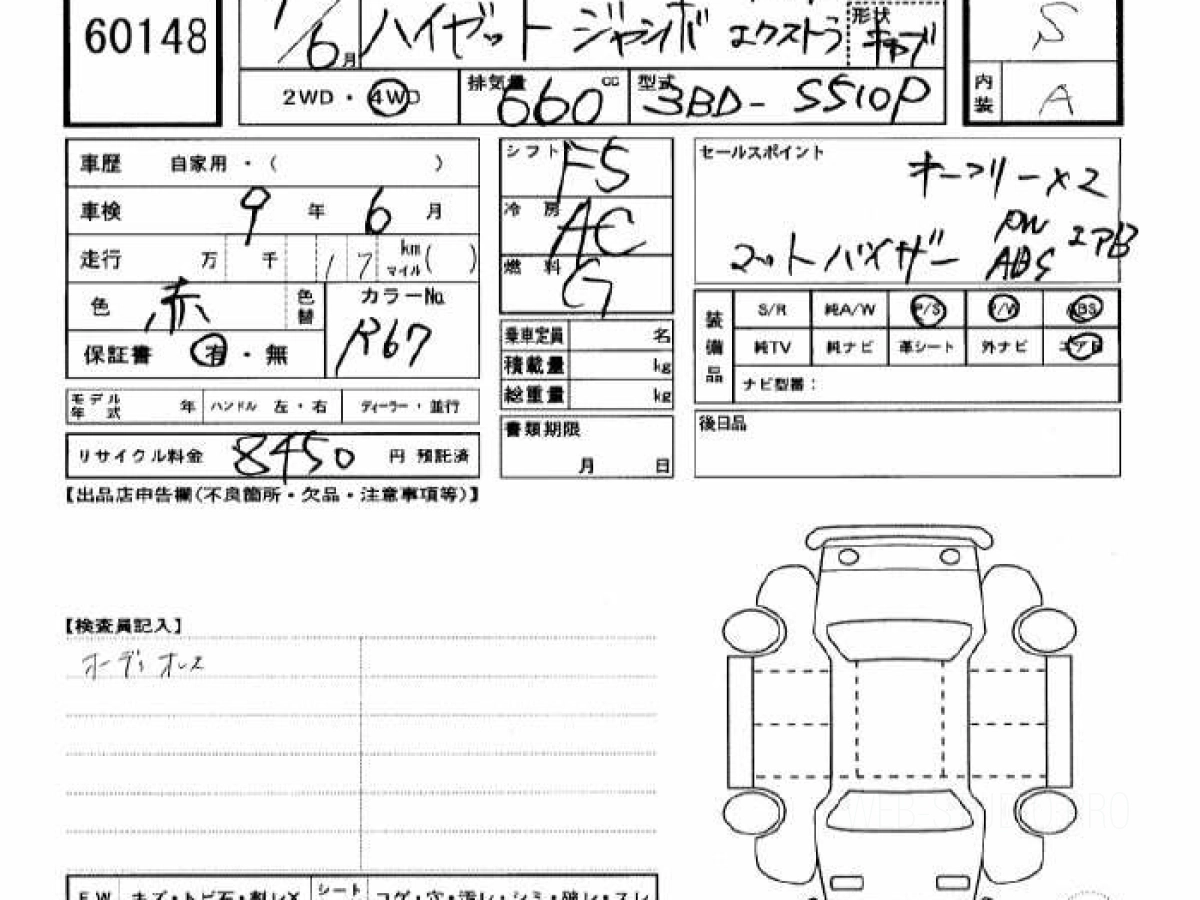 60148
6月
ハイゼット ジャンボ エクストラ
形状
キャブ
S
2WD・4WD
排気量 660 cc
型式 3BD-S510P
内装 A
車歴 自家用・( )
車検 9年 6月
走行 万 千 17 km マイル( )
色 赤
色替
カラーNo. R67
保証書 有・無
モデル年式 年 ハンドル 左・右 ディーラー・並行
リサイクル料金 8450 円 預託済
シフト F5
冷房 AC
燃料 G
乗車定員 名
積載量 kg
総重量 kg
書類期限
月 日
セールスポイント
オーフリー×2
PW エアB
マット バイザー ABS
装備品
S/R 純A/W P/S P/W ABS
純TV 純ナビ 革シート 外ナビ エアB
ナビ型番：
後日品
【出品店申告欄(不良箇所・欠品・注意事項等)】
【検査員記入】
オーディオレス
F.W キズ・トビ石・割レX シート コゲ・穴・汚レ・シミ・破レ・スレ